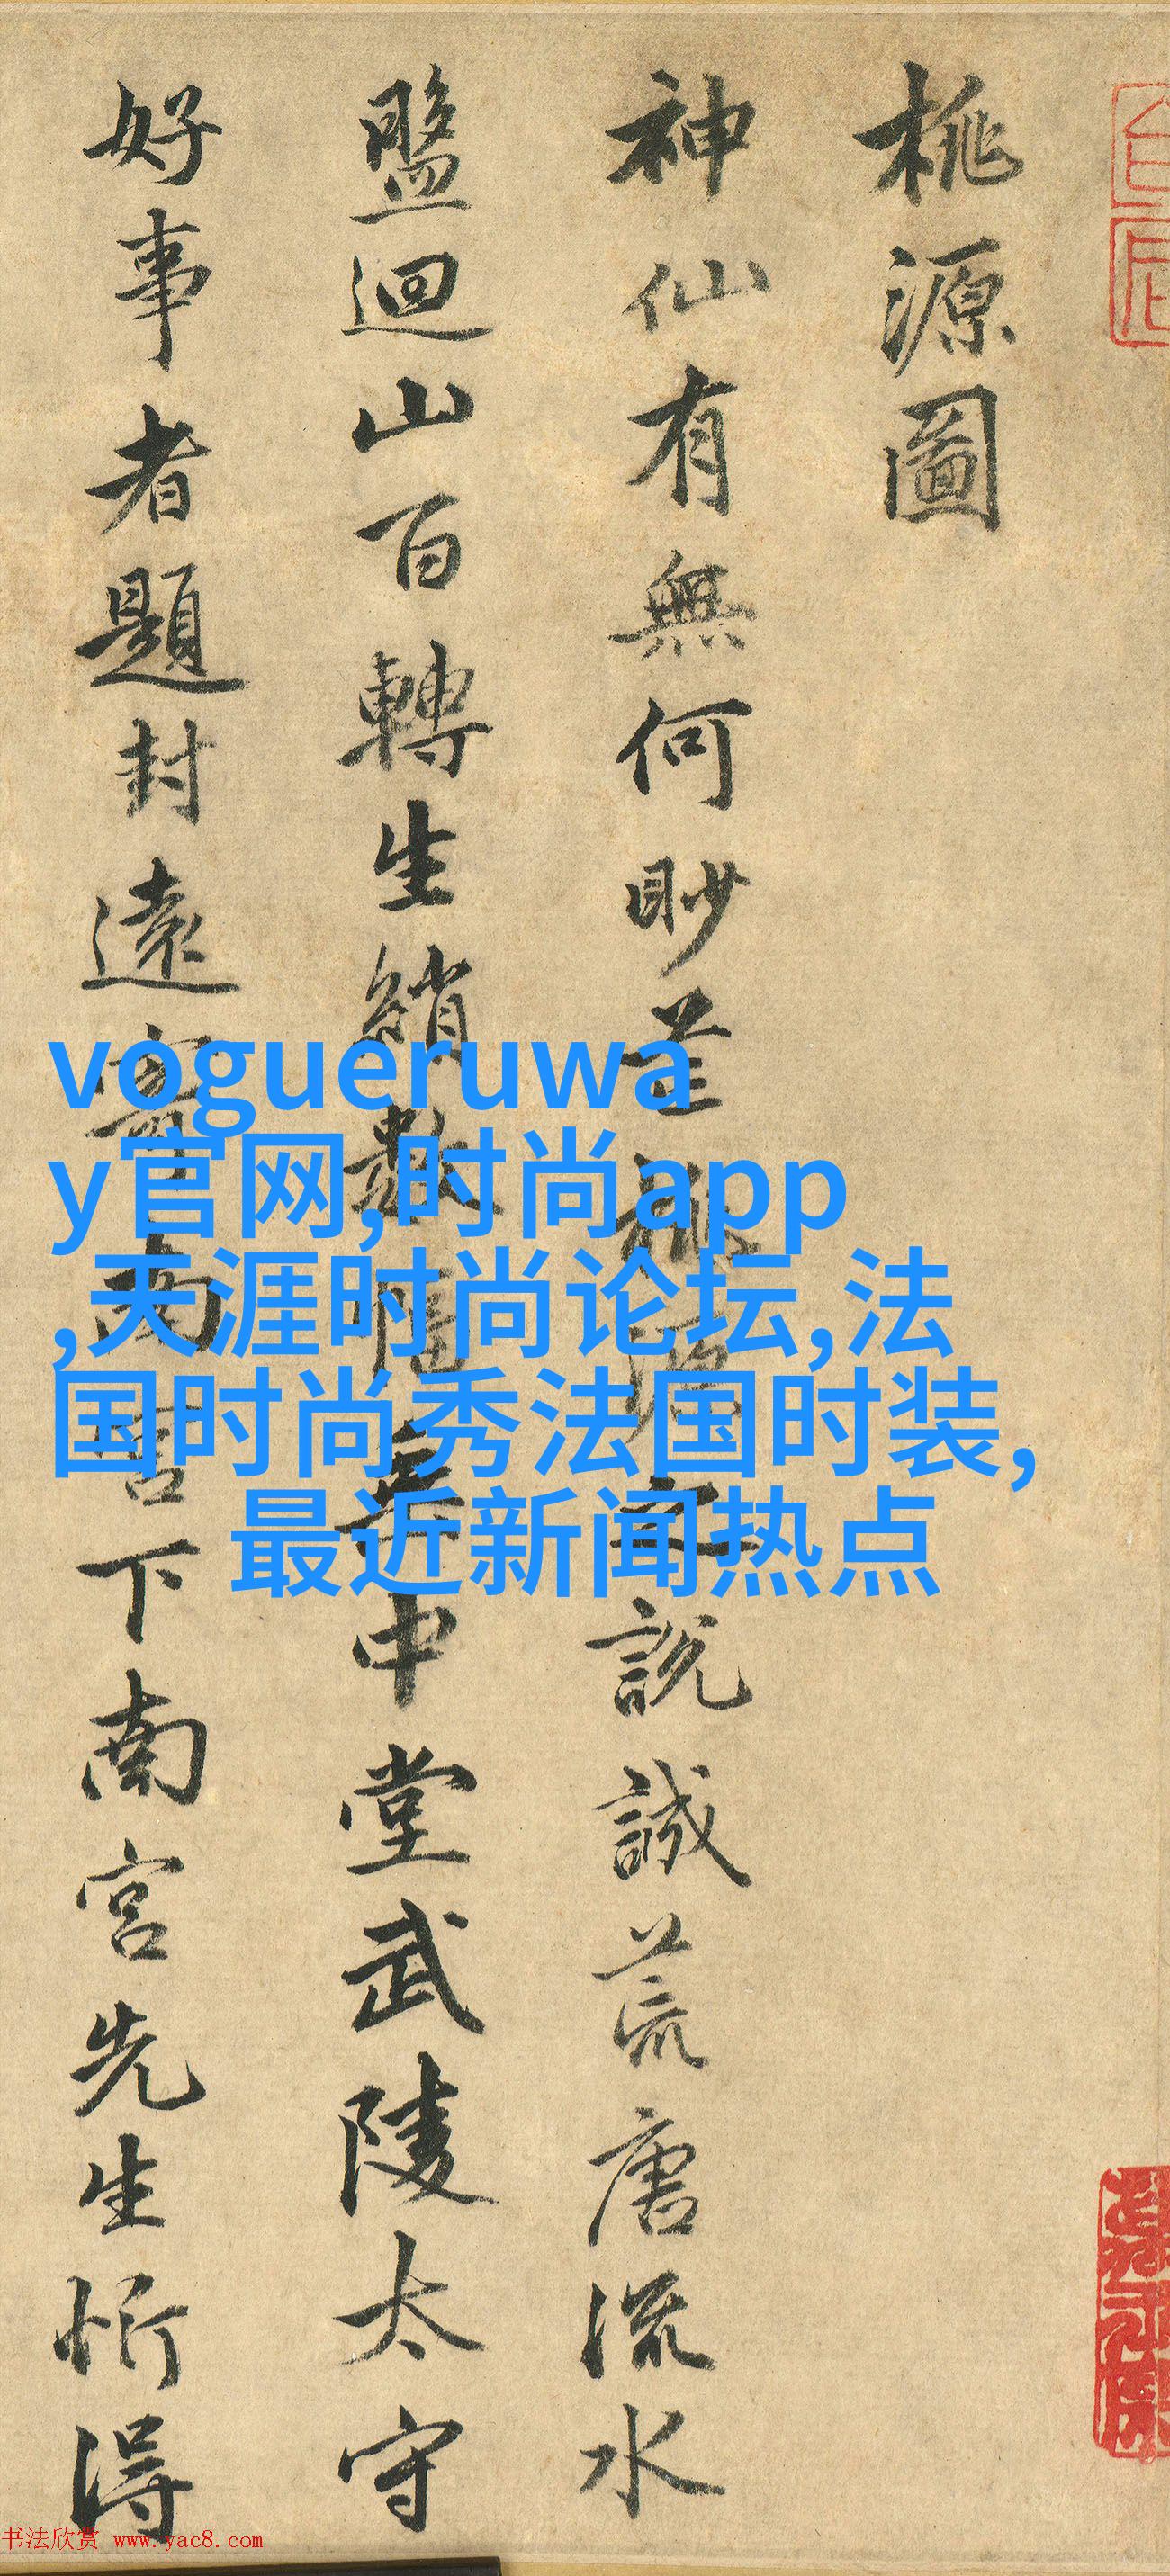 桃源圖
神仙有無何眇芒桃源之說誠荒唐流水
盤迴山百轉生綃數幅垂中堂武陵太守
好事者題封遠寄南宮下南宮先生忻得
vogueruwa
y官网,时尚app
,天涯时尚论坛,法
国时尚秀法国时装,
最近新闻热点
书法欣赏 www.yac8.com